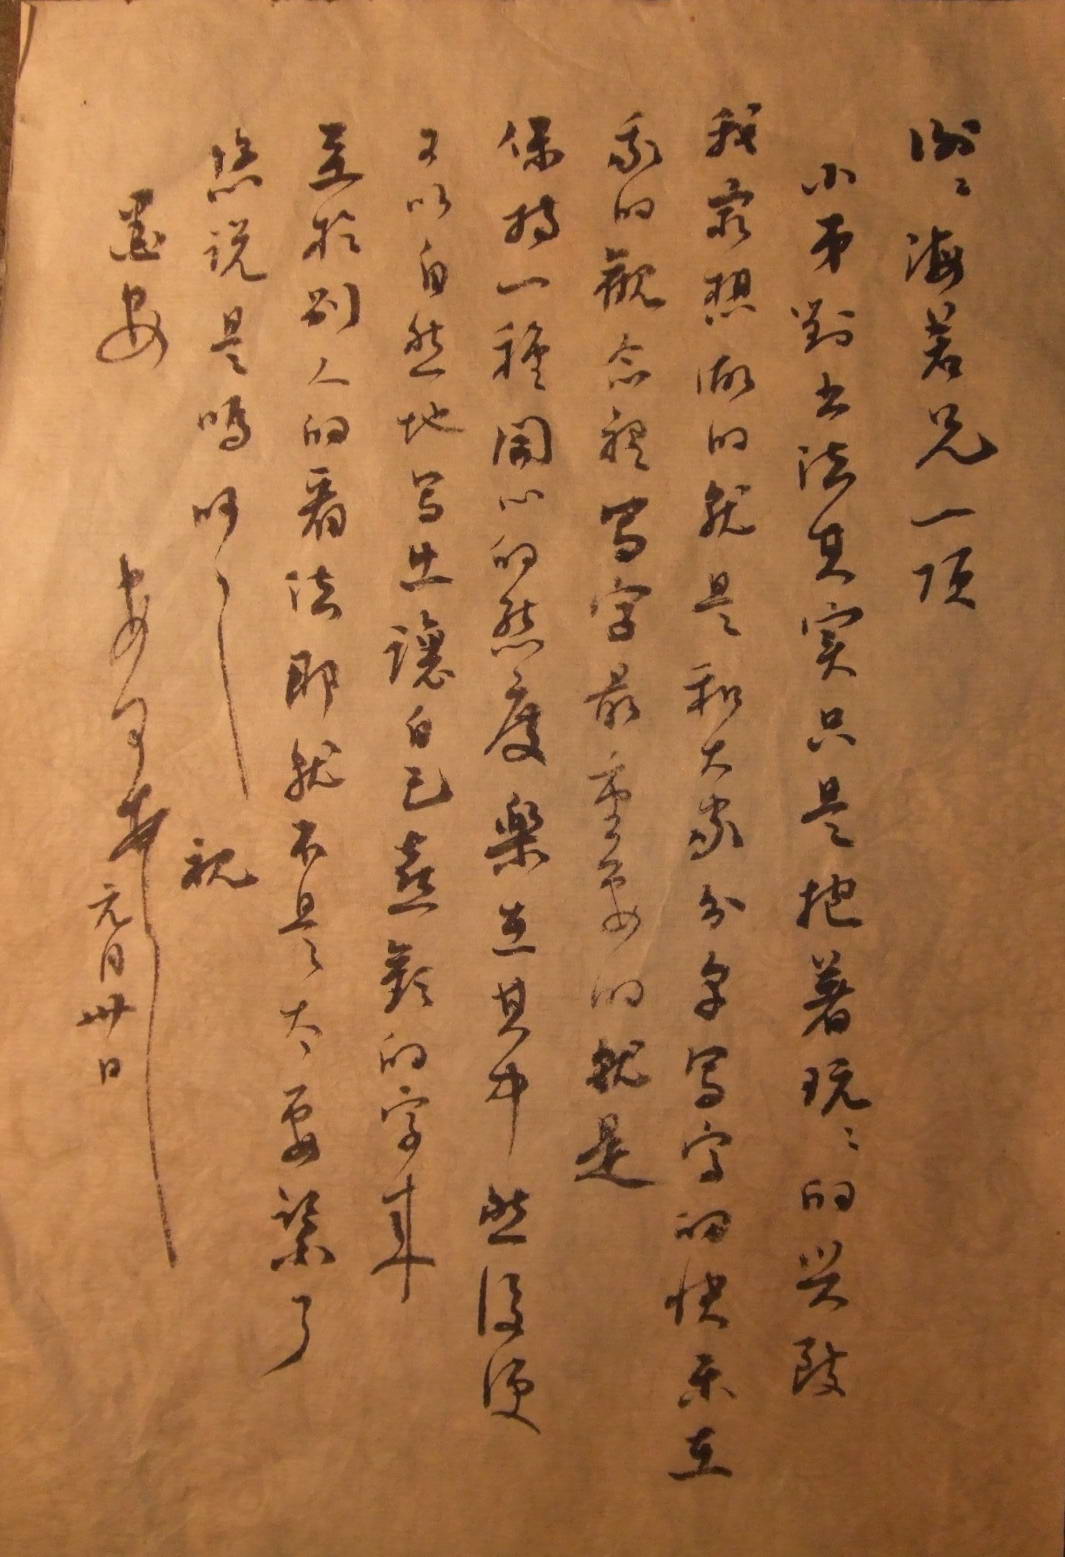 谢〻海若兄一頂
小弟對书法其实只是抱著玩〻的兴致
我最想做的就是和大家分享写字的快乐在
我的觀念裡写字最重要的就是
保持一種開心的態度樂在其中然後便
可以自然地写出讓自己喜歡的字来
至於别人的看法那就不是太要緊了
您说是嗎呵〻 祝
書安
元月卅日